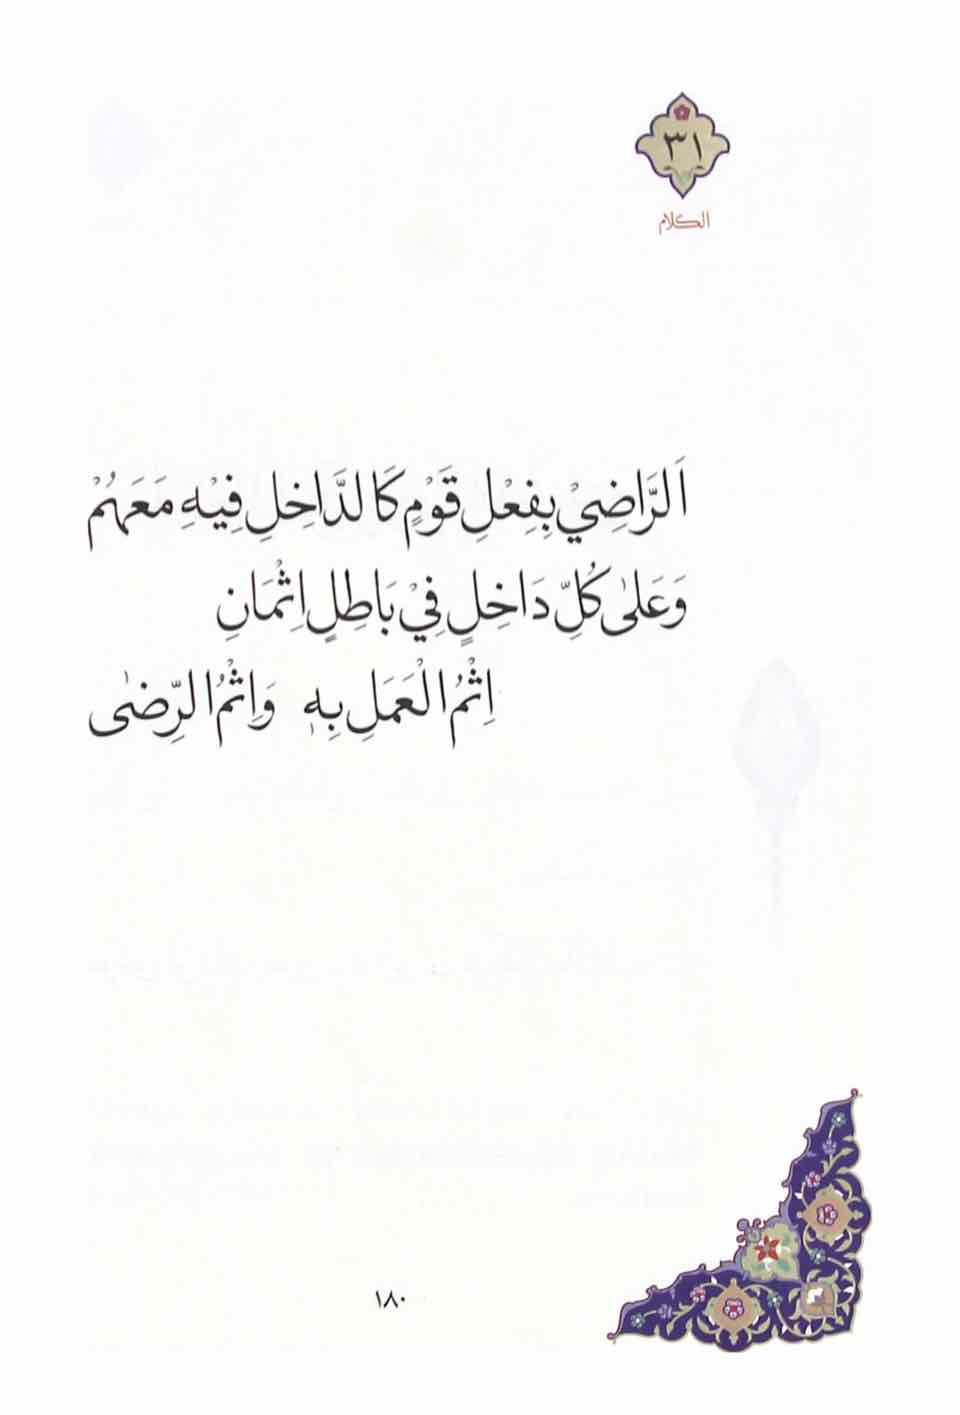 ٣١
الكلام
اَلرَّاضِيْ بِفِعْلِ قَوْمٍ كَالدَّاخِلِ فِيْهِ مَعَهُمْ
وَعَلٰى كُلِّ دَاخِلٍ فِيْ بَاطِلٍ اِثْمَانِ
اِثْمُ الْعَمَلِ بِهٖ وَاِثْمُ الرِّضٰى
١٨٠